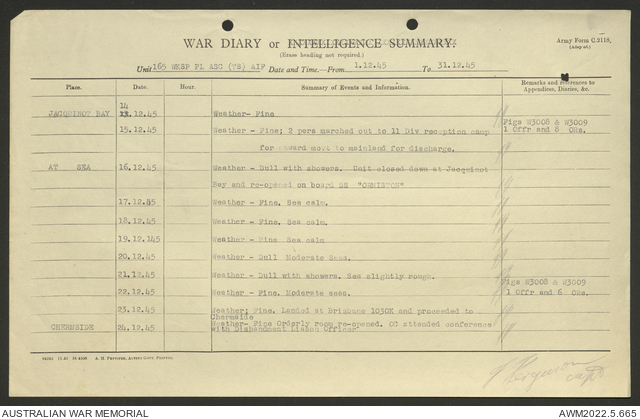 WAR DIARY or INTELLIGENCE SUMMARY.
(Erase heading not required.)
Army Form C.2118.
Unit 165 WKSP PL ASC (TS) AIF Date and Time.—From 1.12.45 To 31.12.45
Place. Date. Hour. Summary of Events and Information. Remarks and references to Appendices, Diaries, &c.
14
JACQUINOT BAY .12.45 Weather- Fine
15.12.45 Weather - Fine; 2 pers marched out to 11 Div reception camp Figs W3008 & W3009
for onward movt to mainland for discharge. 1 Offr and 8 ORs.
AT SEA 16.12.45 Weather - Dull with showers. Unit closed down at Jacquinot
Bay and re-opened on board SS "ORMISTON"
17.12.85 Weather - Fine. Sea calm.
18.12.45 Weather - Fine. Sea calm.
19.12.145 Weather - Fine Sea calm
20.12.45 Weather - Dull Moderate Seas.
21.12.45 Weather - Dull with showers. Sea slightly rough.
22.12.45 Weather - Fine. Moderate seas. Figs W3008 & W3009
1 Offr and 6 ORs.
23.12.45 Weather; Fine. Landed at Brisbane 1030K and proceeded to
Chermside
CHERMSIDE 24.12.45 Weather- Fine Orderly room re-opened. OC attended conference
with Disbandment Liason Officer
A. H. PETTIFER, ACTING GOVT. PRINTER.
Ferguson Capt
AUSTRALIAN WAR MEMORIAL
AWM2022.5.665